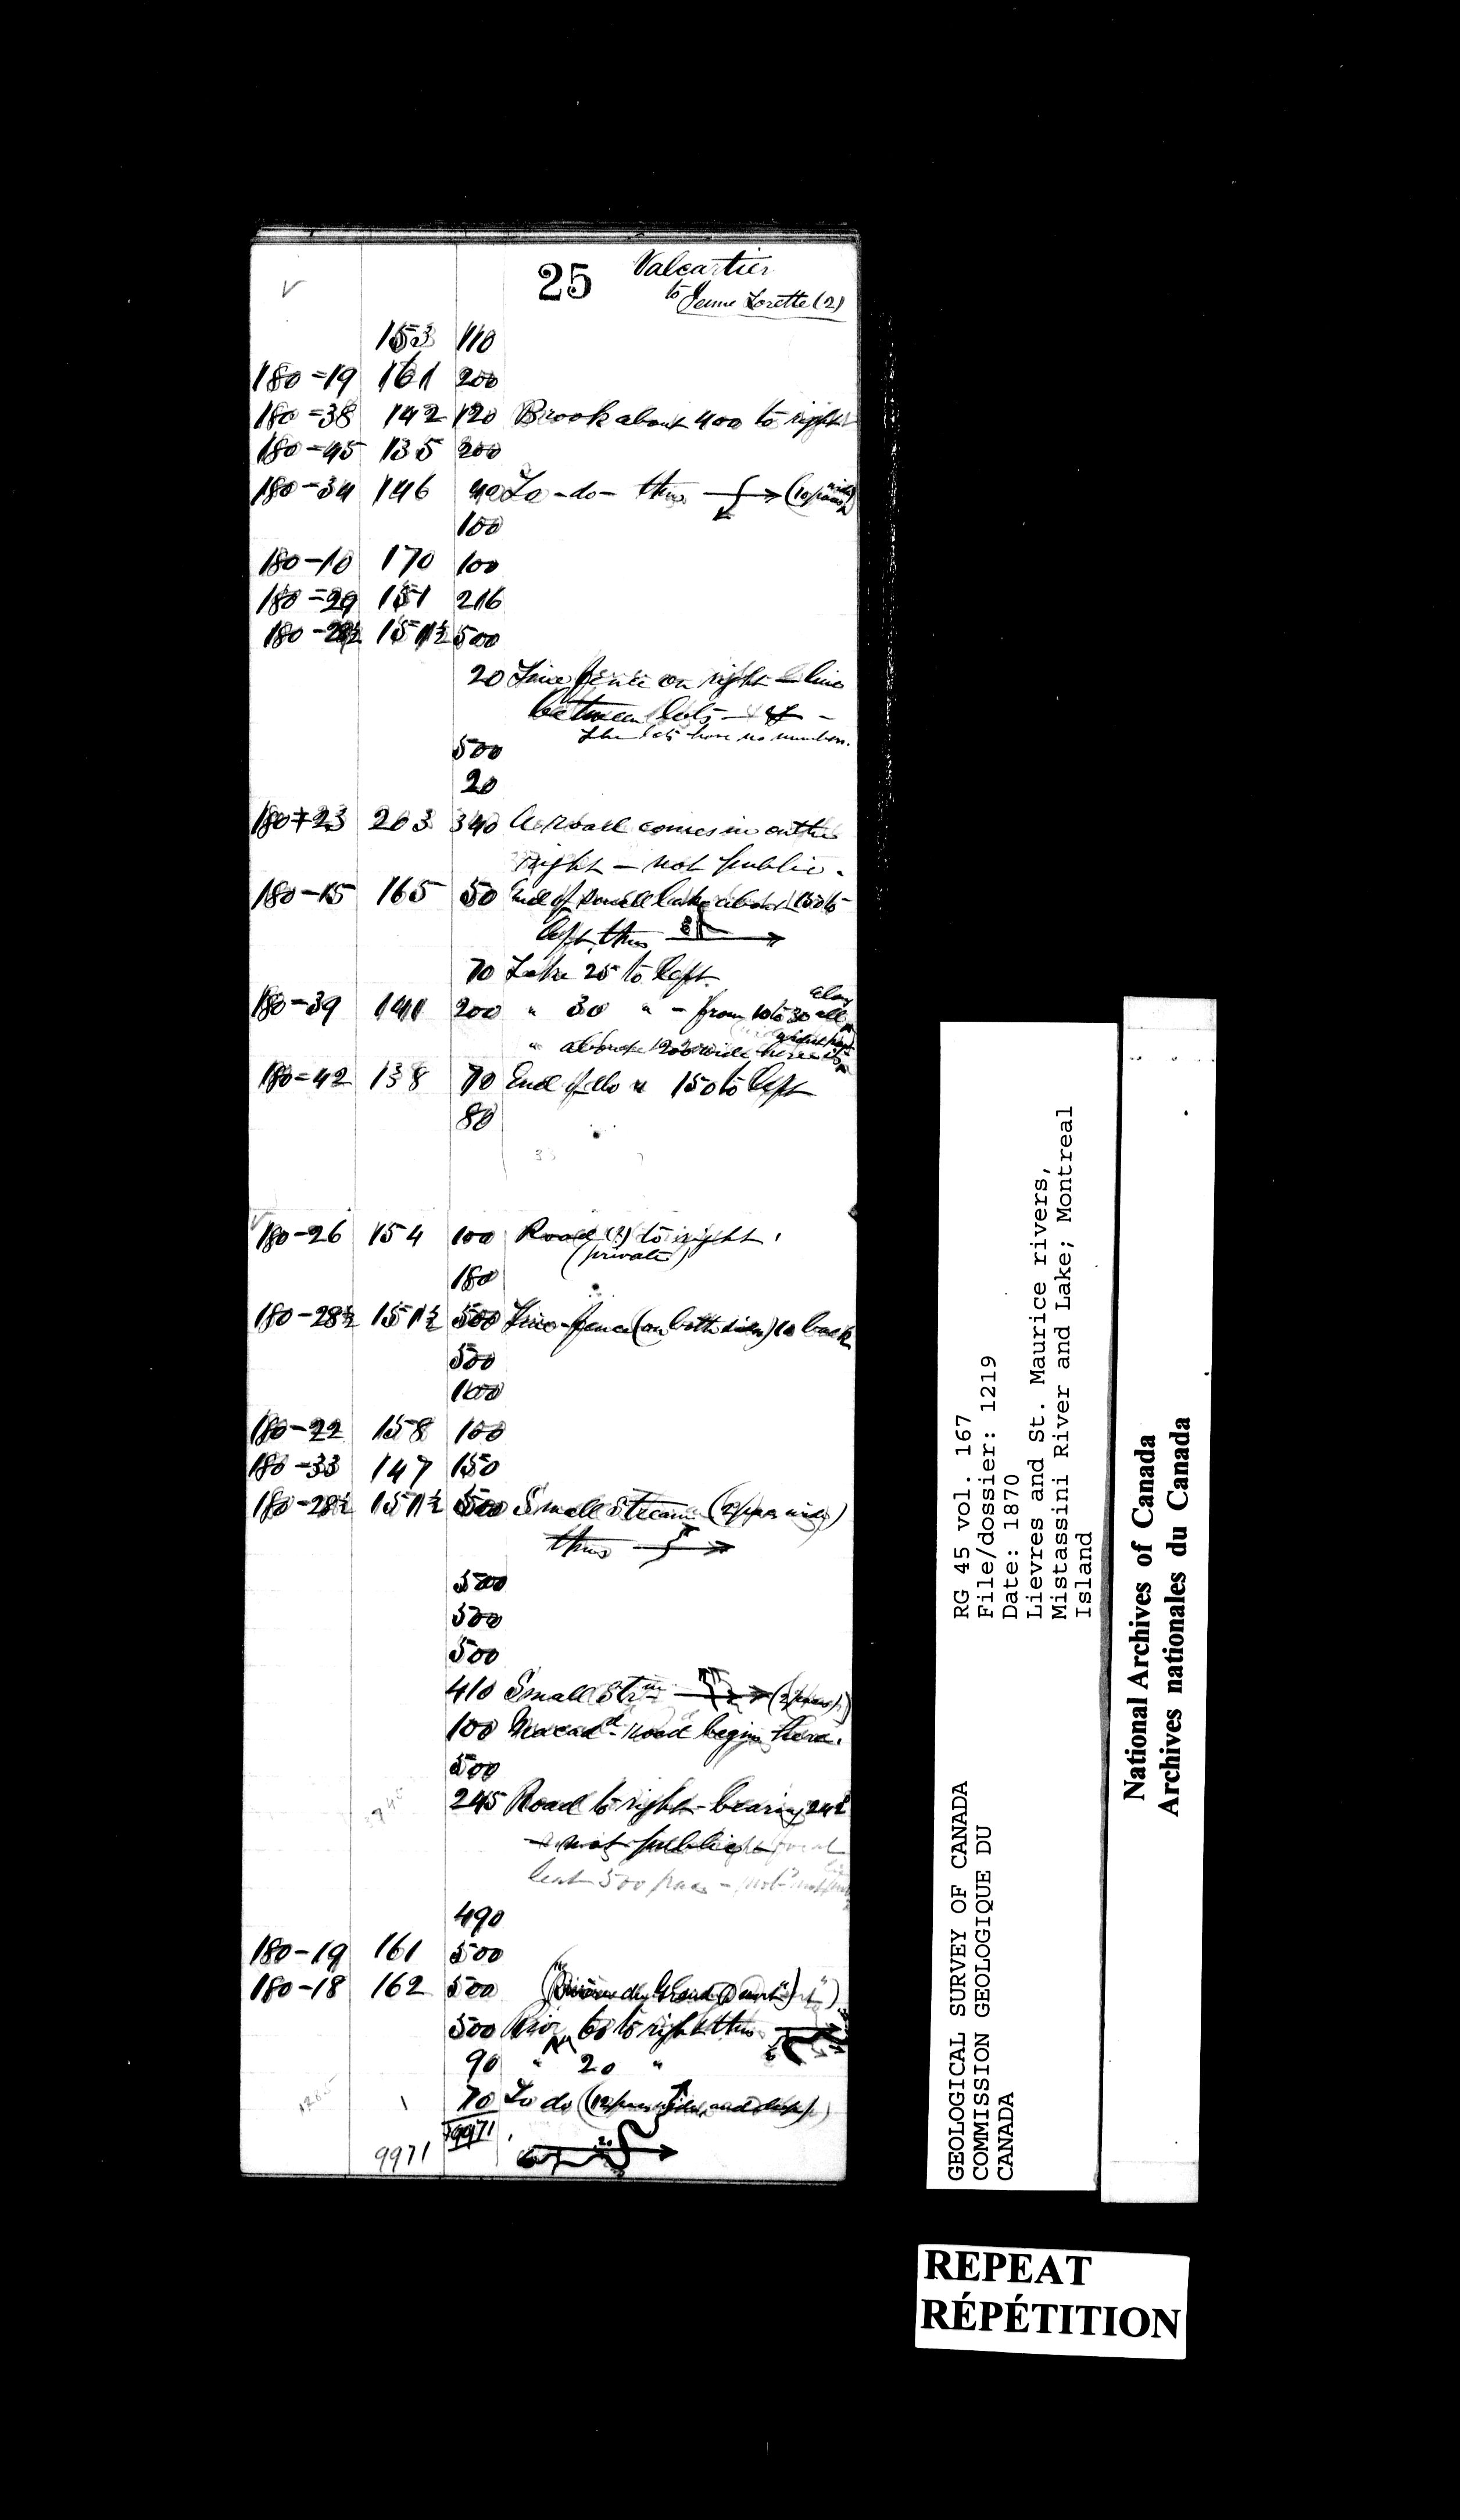 25 Valcartier
to Jeune Lorette (2)
153 110
180-19 161 200
180-38 142 120 Brook about 400 to right
180-45 135 200
180-34 146 40 To -do- thus (10 paces wide)
100
180-10 170 100
180-29 151 216
180-28½ 151½ 500
20 Line fence on right - line
between lots
The lots have no numbers.
500
20
180+23 203 340 A road comes in on the
right - not public.
180-15 165 50 End of small lake about 150 to
left, thus
70 Lake 25 to left.
180-39 141 200 " 30 " - from 10 to 30 all along
" about 120 wide here
180-42 138 70 End of do " 150 to left
80
180-26 154 100 Road (?) to right.
(private)
180
180-28½ 151½ 500 Line-fence (on both sides) 10 back
500
100
180-22 158 100
180-33 147 150
180-28½ 151½ 500 Small Stream (2 paces wide)
thus
500
500
500
410 Small Strm (2 paces)
100 Macadd Road begins here.
500
245 Road to right - bearing 242
not public
500 paces
490
180-19 161 500
180-18 162 500
500 Riv. 60 to right thus
90 " 20 "
70 To do (12 paces wide, and deep)
9971
9971
GEOLOGICAL SURVEY OF CANADA
COMMISSION GEOLOGIQUE DU
CANADA
RG 45 vol. 167
File/dossier: 1219
Date: 1870
Lievres and St. Maurice rivers,
Mistassini River and Lake; Montreal
Island
National Archives of Canada
Archives nationales du Canada
REPEAT
RÉPÉTITION